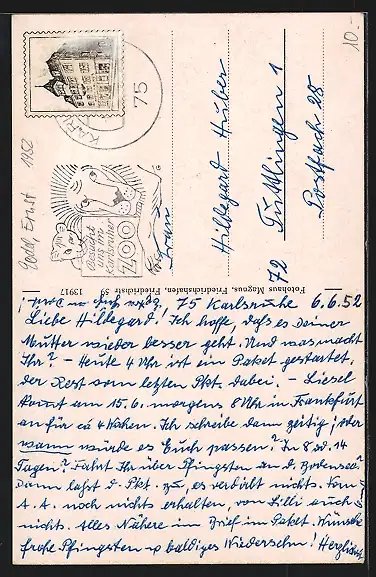 10.-
75
KARL
Besucht
uns im
Karlsruher
ZOO
Goebel, Ernst 1952
Frau
Hildegard Huber
72 Tuttlingen 1
Postfach 28
Fotohaus Magnus, Friedrichshafen, Friedrichstr. 59 13917
75 Karlsruhe 6.6.52
Liebe Hildegard! Ich hoffe, daß es Deiner
Mutter wieder besser geht. Und was macht
Ihr? - Heute 4 Uhr ist ein Paket gestartet,
der Rest vom letzten Pkt. dabei. - Liesel
kommt am 15.6. morgens 8 Uhr in Frankfurt
an für ca 4 Wochen. Ich schreibe dann zeitig; aber
wann würde es Euch passen? In 8 od. 14
Tagen? Fahrt Ihr über Pfingsten an d. Bodensee?
Dann laßt d. Pkt. zu, es verdirbt nichts. Vom
A. A. noch nichts erhalten, von Lilli auch
nichts. Alles Nähere im Brief im Paket. Wünsche
frohe Pfingsten u. baldiges Wiedersehn! Herzlichst